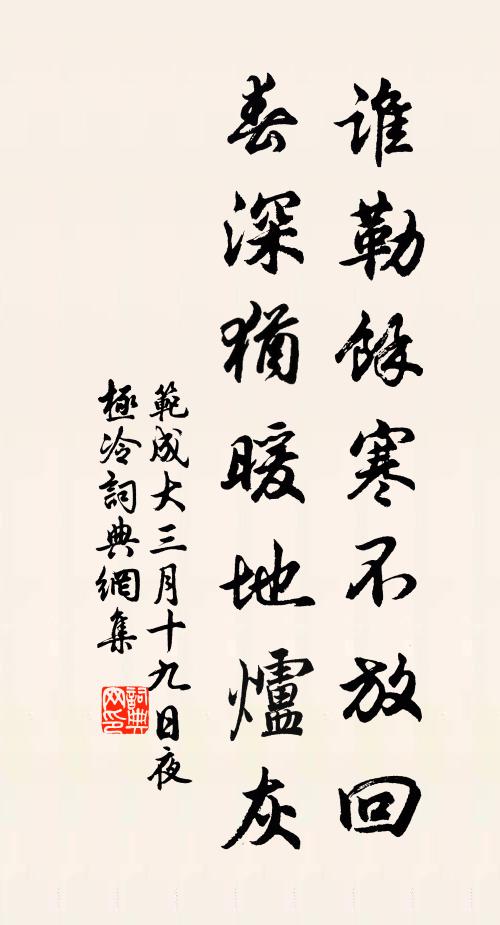 誰勒餘寒不放回
春深猶暖地爐灰
範成大三月十九日夜
極冷詞典網集
詞典网印